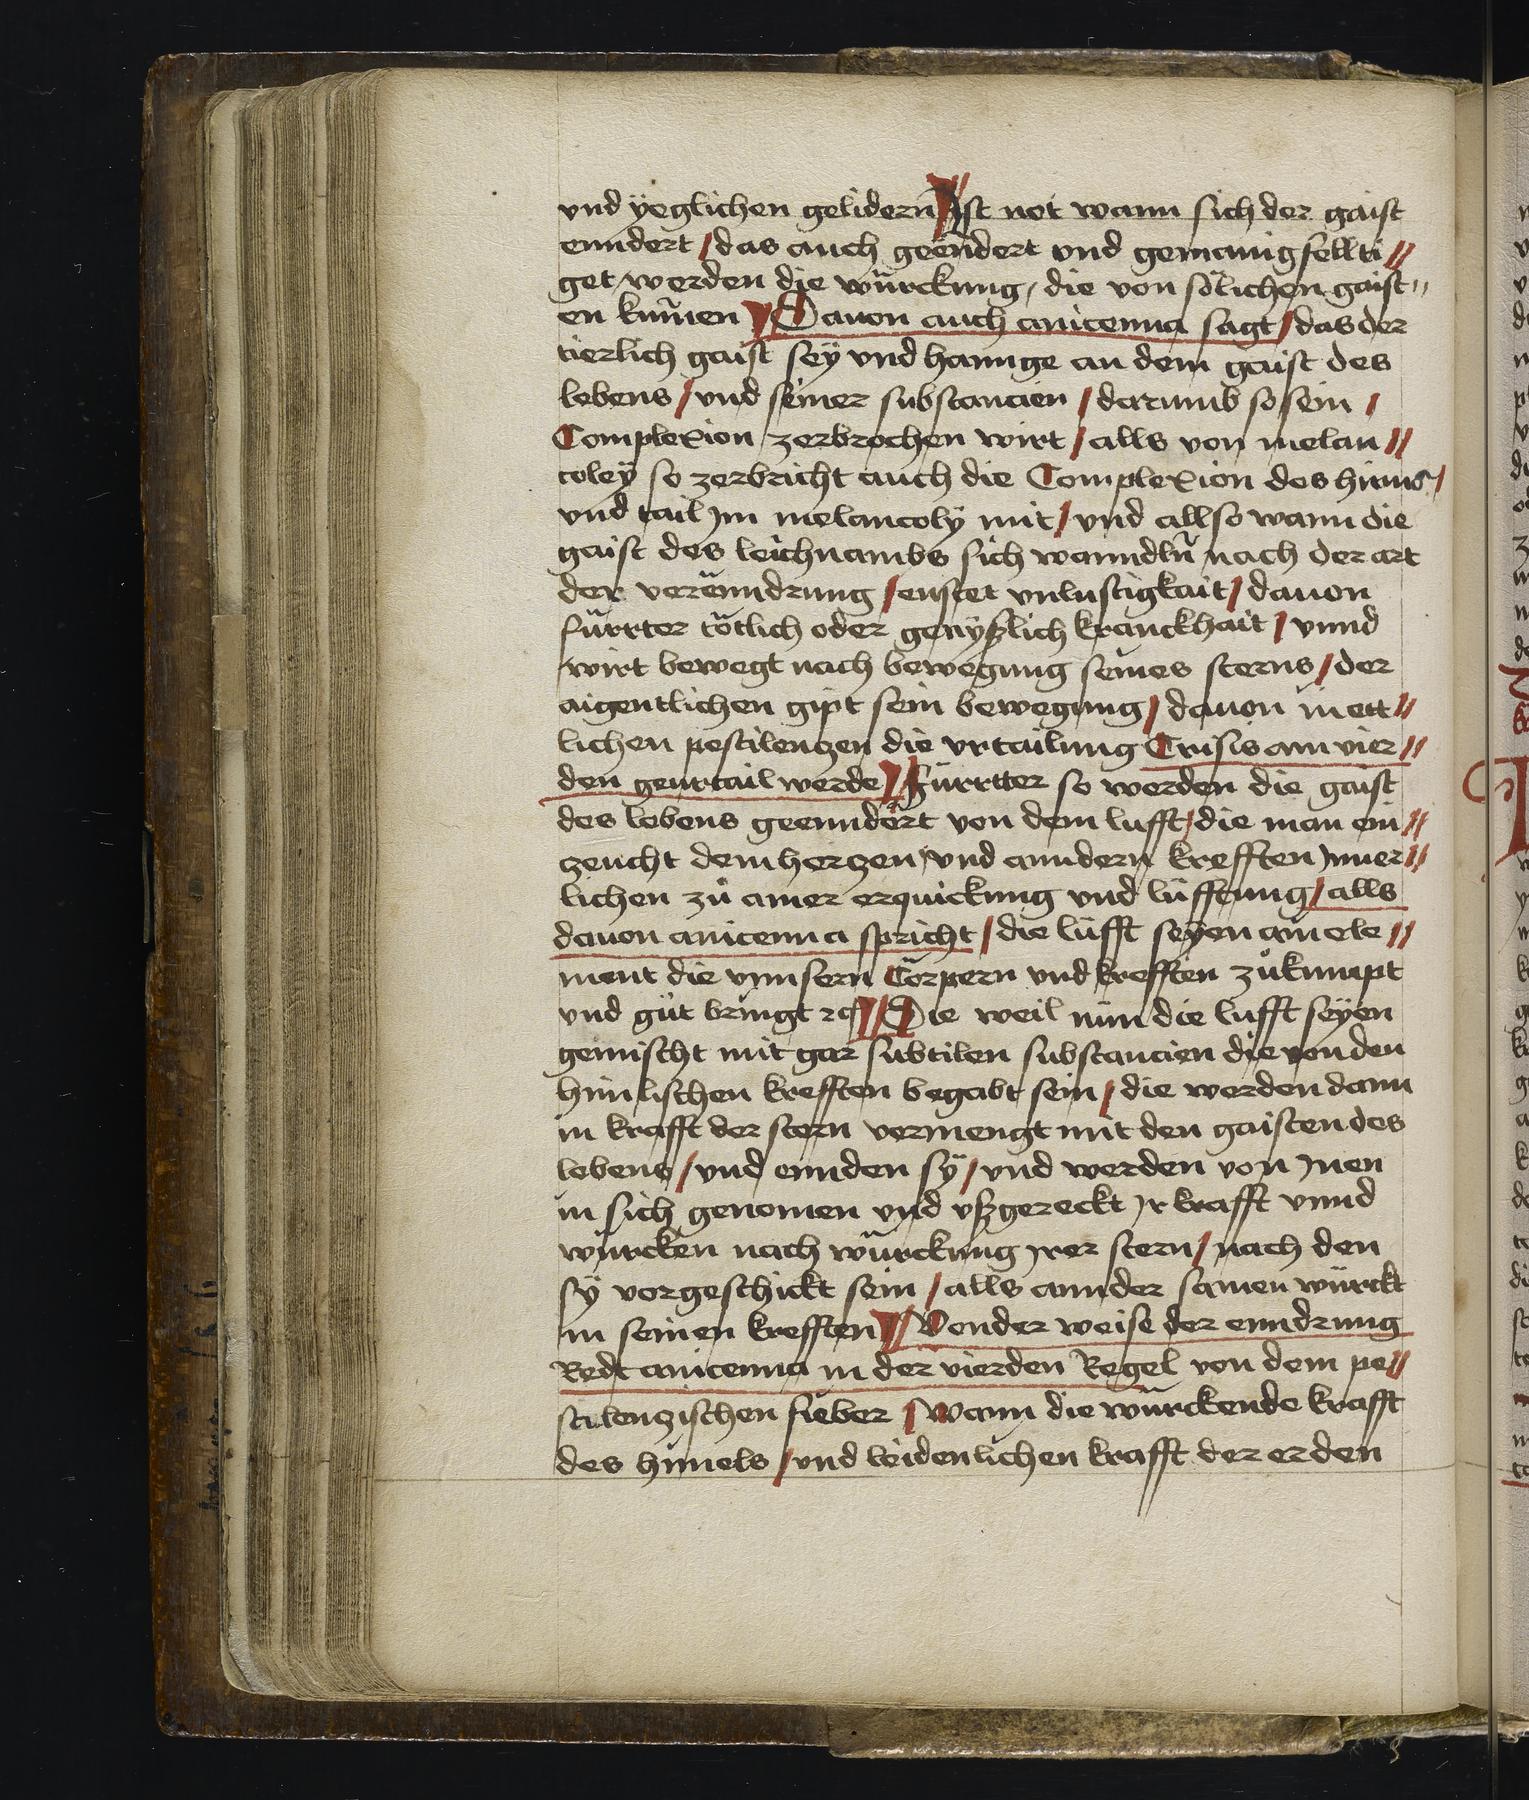 vnd yeglichen gelidern Ist not wann sich der gaist
enndert / das auch geenndert vnd gemanigfellti //
get werden die würckung / die von sölichen gaist //
en kumen Dauon auch auicenna sagt / das der
tierlich gaist sey vnd hannge an dem gaist des
lebens / vnd seiner substancien / darumb so sein /
Complexion zerbrochen wirt / alls von melan //
coley so zerbricht auch die Complexion des hirns /
vnd tail jm melancoly mit / vnd allso wann die
gaist des leichnambs sich wanndln nach der art
der verenndrung / enstet vnlustigkait / dauon
fürrter tötlich oder genyßlich kranckhait / vnnd
wirt bewegt nach bewegung seines sterns / der
aigentlichen gipt sein bewegung / dauon in ett //
lichen pestilenzen die vrtailung Crisis am vier //
den geurtail werde Fürrtter so werden die gaist
des lebens geenndert von dem lufft / die man ein //
zeucht dem herzen / vnd anndern krefften jnner //
lichen zů ainer erquickung vnd lüfftung / alls
dauon auicenna spricht / die lüfft seyen ain ele //
ment die vnnsern Cörpern vnd krefften zůknüpt
vnd gůt bringt ꝛc Die weil nün die lufft seyen
gemischt mit gar subtilen substancien die von den
himlischen krefften begabt sein / die werden dann
in krafft der stern vermengt mit den gaisten des
lebens / vnd ennden sy / vnd werden von jnen
in sich genomen vnd vßgereckt jr krafft vnnd
würcken nach würckung jrer stern / nach den
sy vorgeschickt sein / alls ann der samen würckt
in seinen krefften Von der weise der enndrung
Redt auicenna in der vierden Regel von dem pe //
stilenzischen fieber / Wann die würckende krafft
des himels / vnd leidenlichen krafft der erden